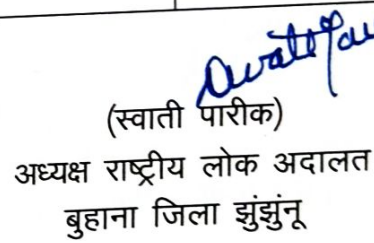 (स्वाती पारीक)
अध्यक्ष राष्ट्रीय लोक अदालत
बुहाना जिला झुंझुंनू